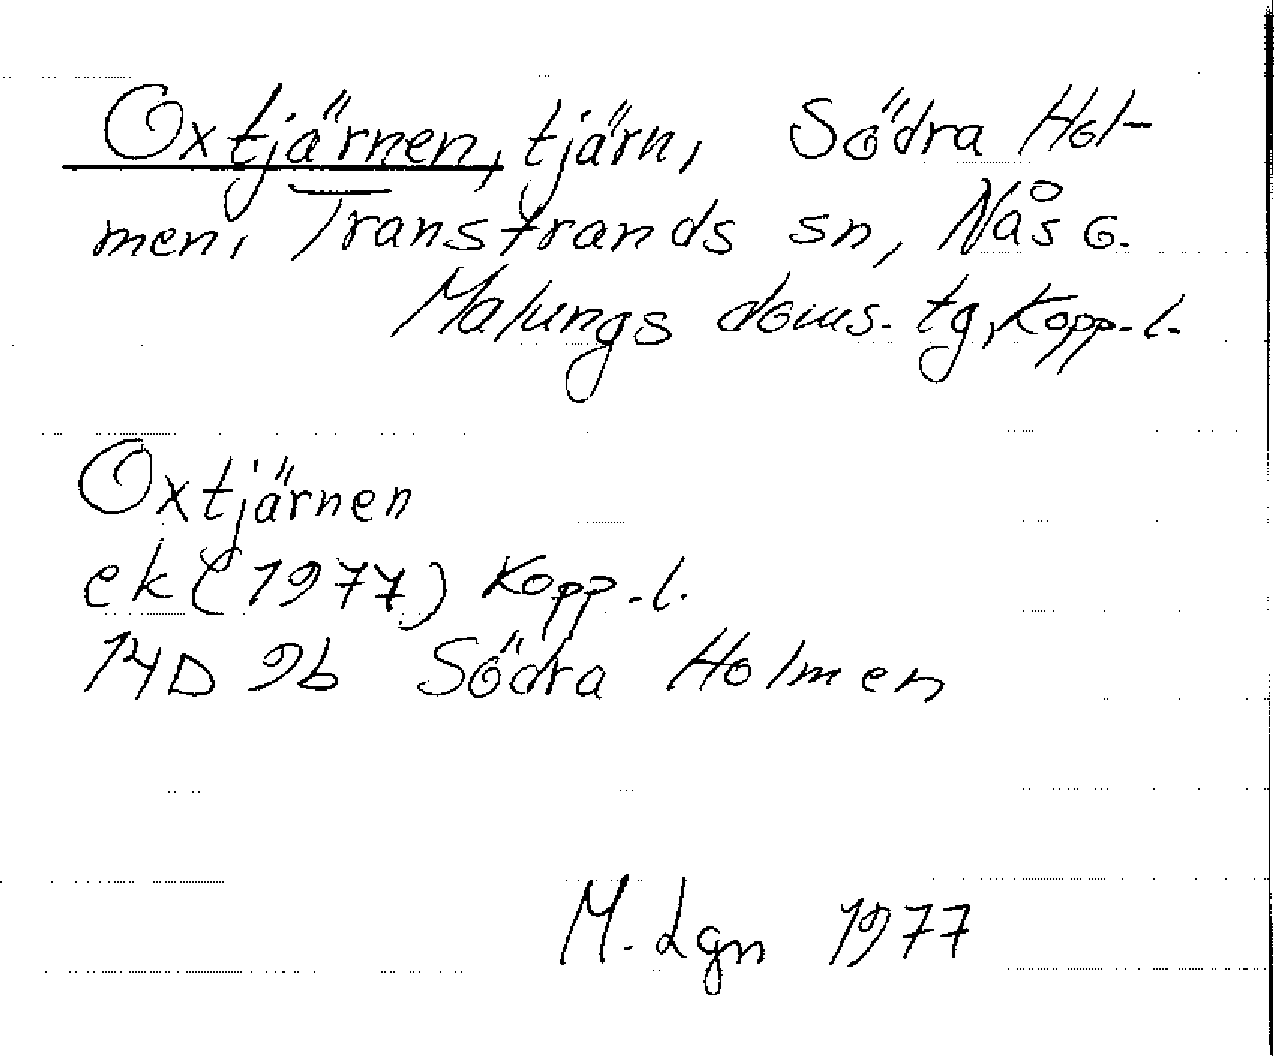 Oxtjärnen, tjärn, Södra Hol-
men, Transtrands sn, Nås o.
Malungs doms. tg, Kopp.l.
Oxtjärnen
ek (1977) Kopp.l.
14D 9b Södra Holmen
M. Lgn 1977